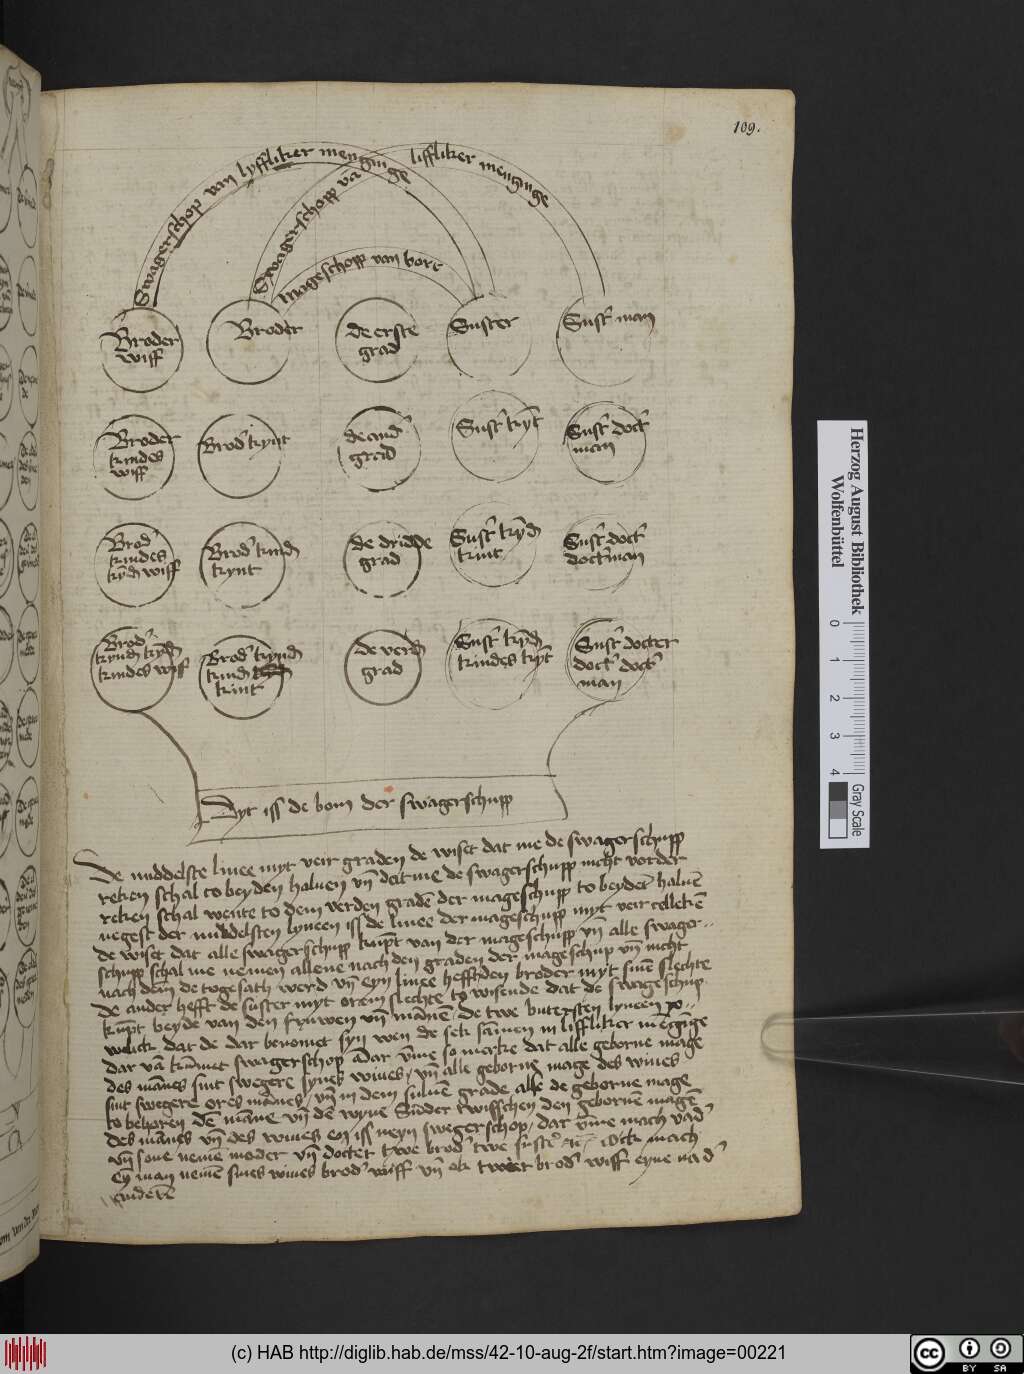 109.
Swagerschop van lyffliker menginge
Swagerschopp vā liffliker menginge
mageschopp van bort
Broder
wiff
Broder
de erste
grad
Suster
Sust' man
Broder
kindes
wiff
Brod' kynt
de and'
grad
Sust' kȳt
Sust' docht'
man
Brod'
kindes
kȳd wiff
Brod' kind
kynt
de dridde
grad
Sust' kȳd
kint
Sust' docht'
docht'man
Brod'
kynd kȳd
kindes wiff
Brod' kynd
kind
kint
de verd
grad
Sust' kȳd
kindes kȳt
Sust' docter
doct' doct'
man
Dyt iss de bom der swagerschupp
De middelste linee myt veir graden de wiset dat me de swagerschupp
reken schal to beyden haluen vn̄ dat me de swagerschupp nicht vorder
reken schal wente to dem verden gradē der mageschupp to beydē haluē
negest der middelsten lyneen iss de linee der mageschupp myt veir cellekē
de wiset dat alle swagerschupp kūpt van der mageschupp vn̄ alle swager
schupp schal me nemen allene nach den graden der mageschup vn̄ nicht
nach dem de togesath werd vn̄ eyn linee hefft den broder myt sinē slechte
de ander hefft de suster myt orem slechte to wisende dat de swageschup
kūpt beyde van den fruwen vn̄ mānē de twe butersten lyneen
welick dat de dar benomet syn wen de sek sāmen in liffliker mēginge
dar vā kūmet swagerschop Adar vmme so merke dat alle geborne mage
des mānes sint swegere synes wiues / vn̄ alle geborne mage des wiues
sint swegere ores mānes / vn̄ in dem suluē grade alse de geborne mage
to behoren dē māne vn̄ dē wyue Sunder twisschen den gebornē mage
des mānes vn̄ des wiues en iss neyn swegerschop / dar vmme mach vad'
vn̄ sone neme moder vn̄ docter twe brod' twe sust' ock mach
Eȳ man nemē sines wiues brod' wiff vn̄ ok twier brod' wiff eyne na d'
anderē
Herzog August Bibliothek
Wolfenbüttel
0 1 2 3 4
Gray Scale
(c) HAB http://diglib.hab.de/mss/42-10-aug-2f/start.htm?image=00221
cc
BY SA